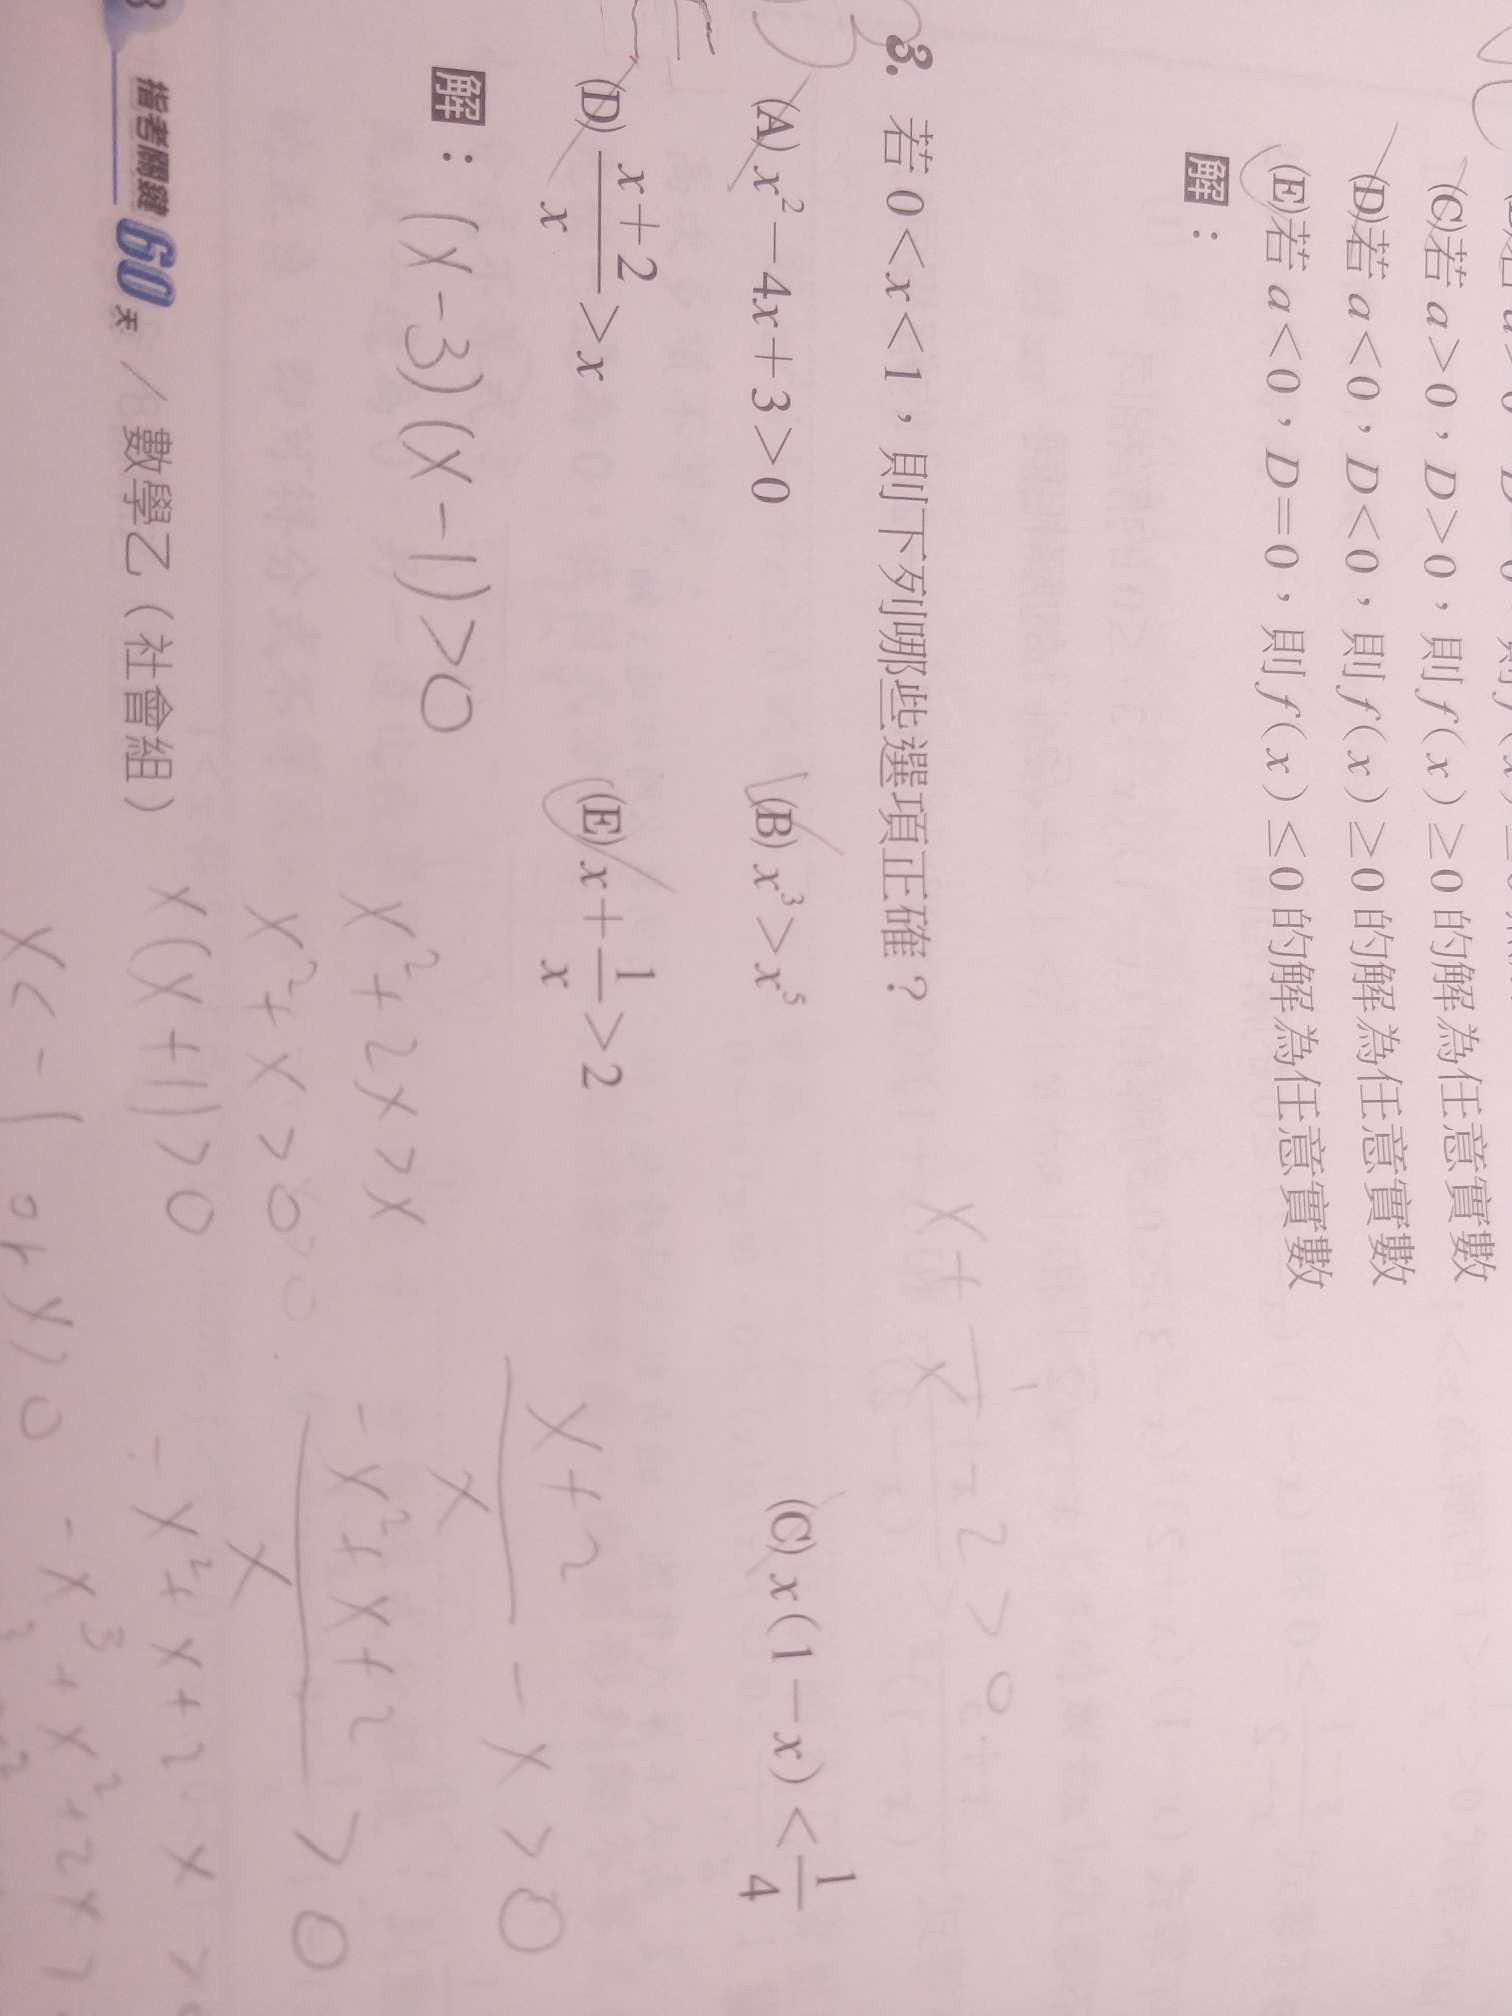 (C)若 a>0，D>0，則 f(x)≥0 的解為任意實數
(D)若 a<0，D<0，則 f(x)≥0 的解為任意實數
(E)若 a<0，D=0，則 f(x)≤0 的解為任意實數
解：
x + 1/x - 2 > 0
3. 若 0<x<1，則下列哪些選項正確？
(A) x²-4x+3>0 (B) x³>x⁵ (C) x(1-x)<1/4
(D) (x+2)/x > x (E) x+1/x>2
解：(x-3)(x-1)>0
(x+2)/x - x > 0
x²+2x>x
(-x²+x+2)/x > 0
x²+x>0
x(x+1)>0
-x²+x+2
x<-1 or
-x³+x²+2x>
指考關鍵60天／數學乙（社會組）